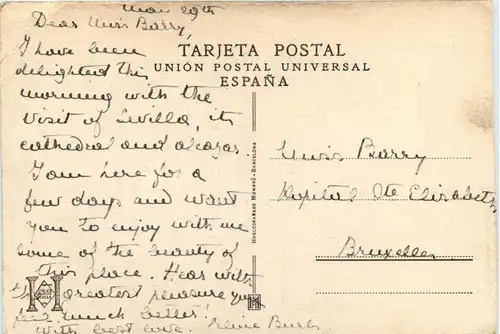 Mar 29th
Dear Miss Barry,
I have been
delighted this
morning with the
visit of Sevilla, its
cathedral and alcazar.
I am here for a
few days and want
you to enjoy with me
some of the beauty of
this place. Hear with
the greatest pleasure you
much better!
with best love.
TARJETA POSTAL
UNIÓN POSTAL UNIVERSAL
ESPAÑA
HUECOGRABADO MUMBRÚ - BARCELONA
Miss Barry
Hôpital Ste Elisabeth
Bruxelles